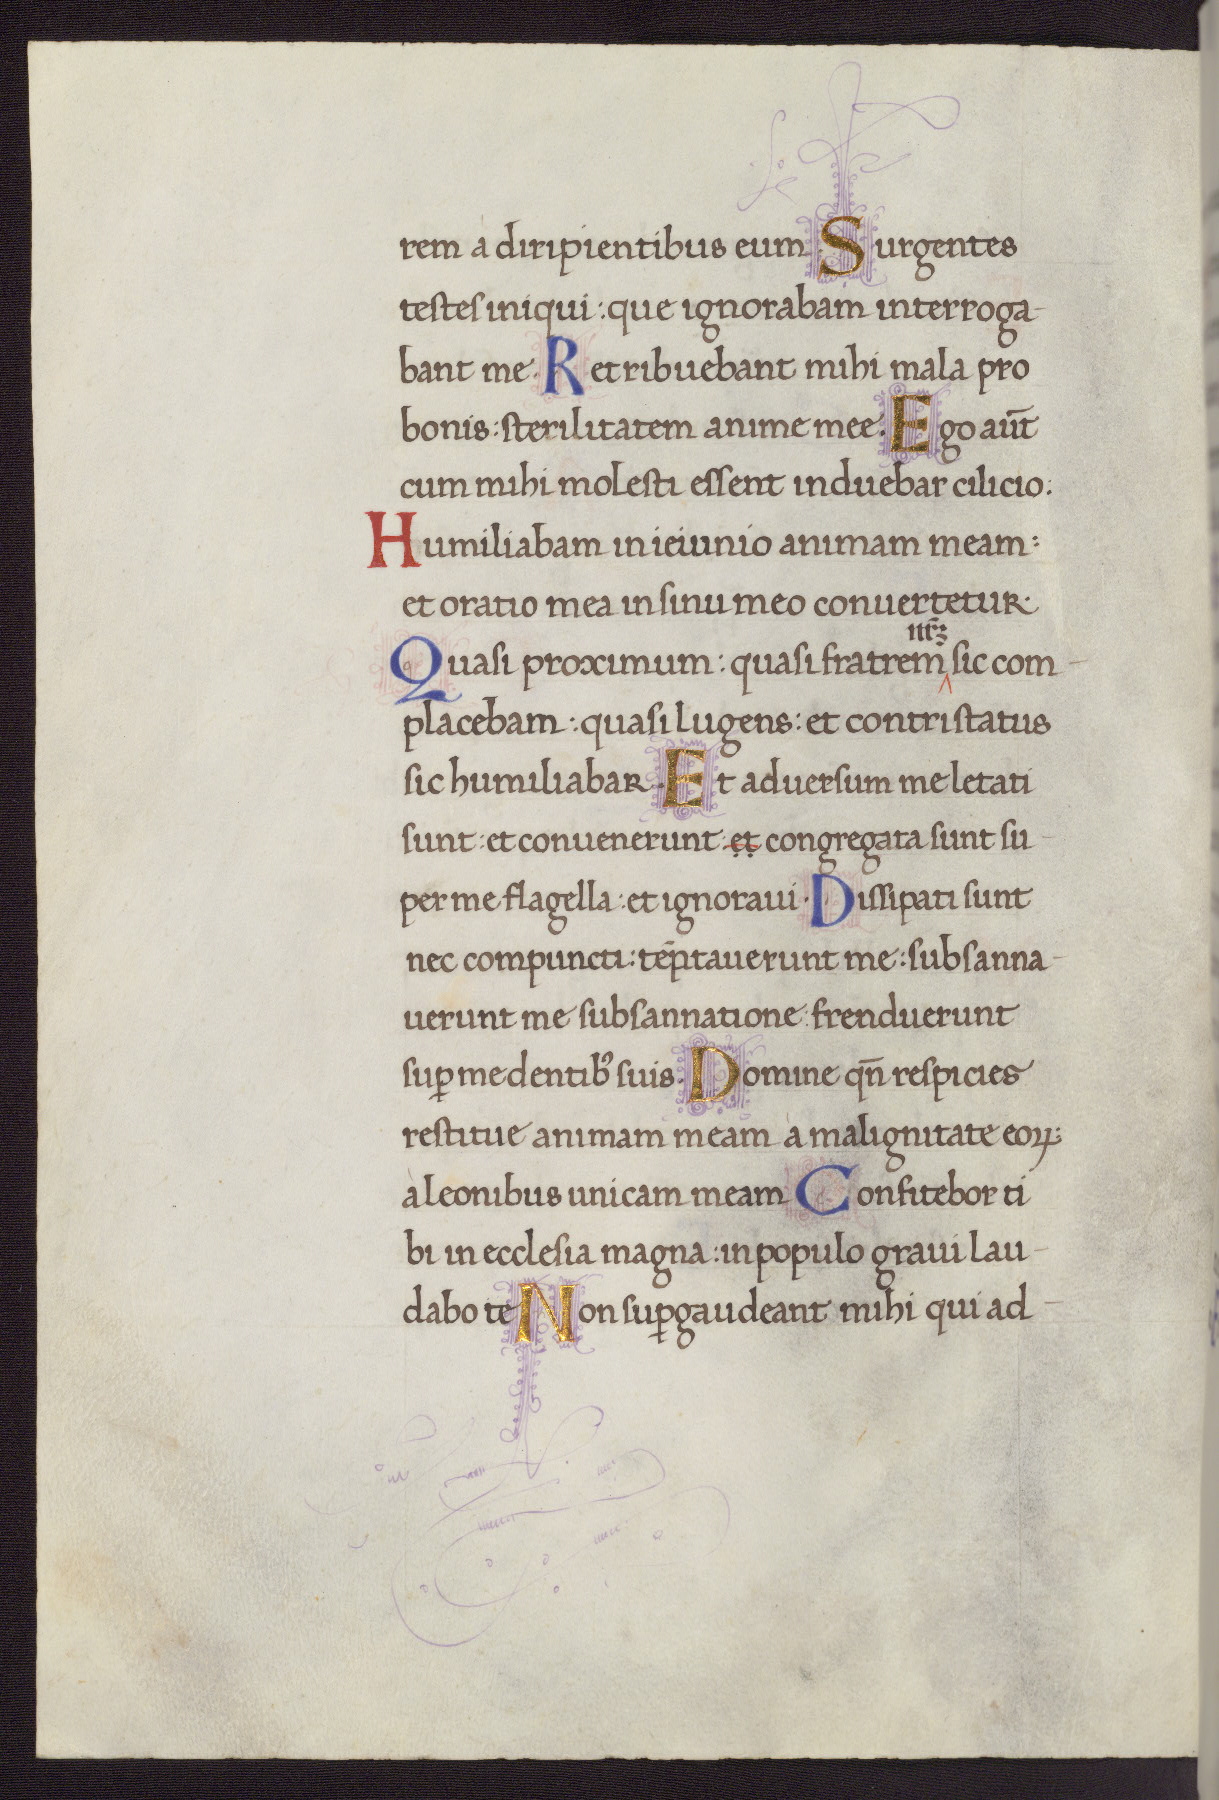 rem a diripientibus eum. Surgentes
testes iniqui: que ignorabam interroga-
bant me. Retribuebant mihi mala pro
bonis: sterilitatem anime mee. Ego aūt
cum mihi molesti essent induebar cilicio:
Humiliabam in ieiunio animam meam:
et oratio mea in sinu meo conuertetur.
Quasi proximum: quasi fratrem sic com-
placebam: quasi lugens: et contristatus
sic humiliabar. Et aduersum me letati
sunt: et conuenerunt: et congregata sunt su-
per me flagella: et ignoraui. Dissipati sunt
nec compuncti: tēptauerunt me: subsanna-
uerunt me subsannatione: frenduerunt
suꝑ me dentibꝰ suis. Domine qn̄ respicies
restitue animam meam a malignitate eoꝝ:
a leonibus unicam meam. Confitebor ti
bi in ecclesia magna: in populo graui lau-
dabo te. Non suꝑgaudeant mihi qui ad-